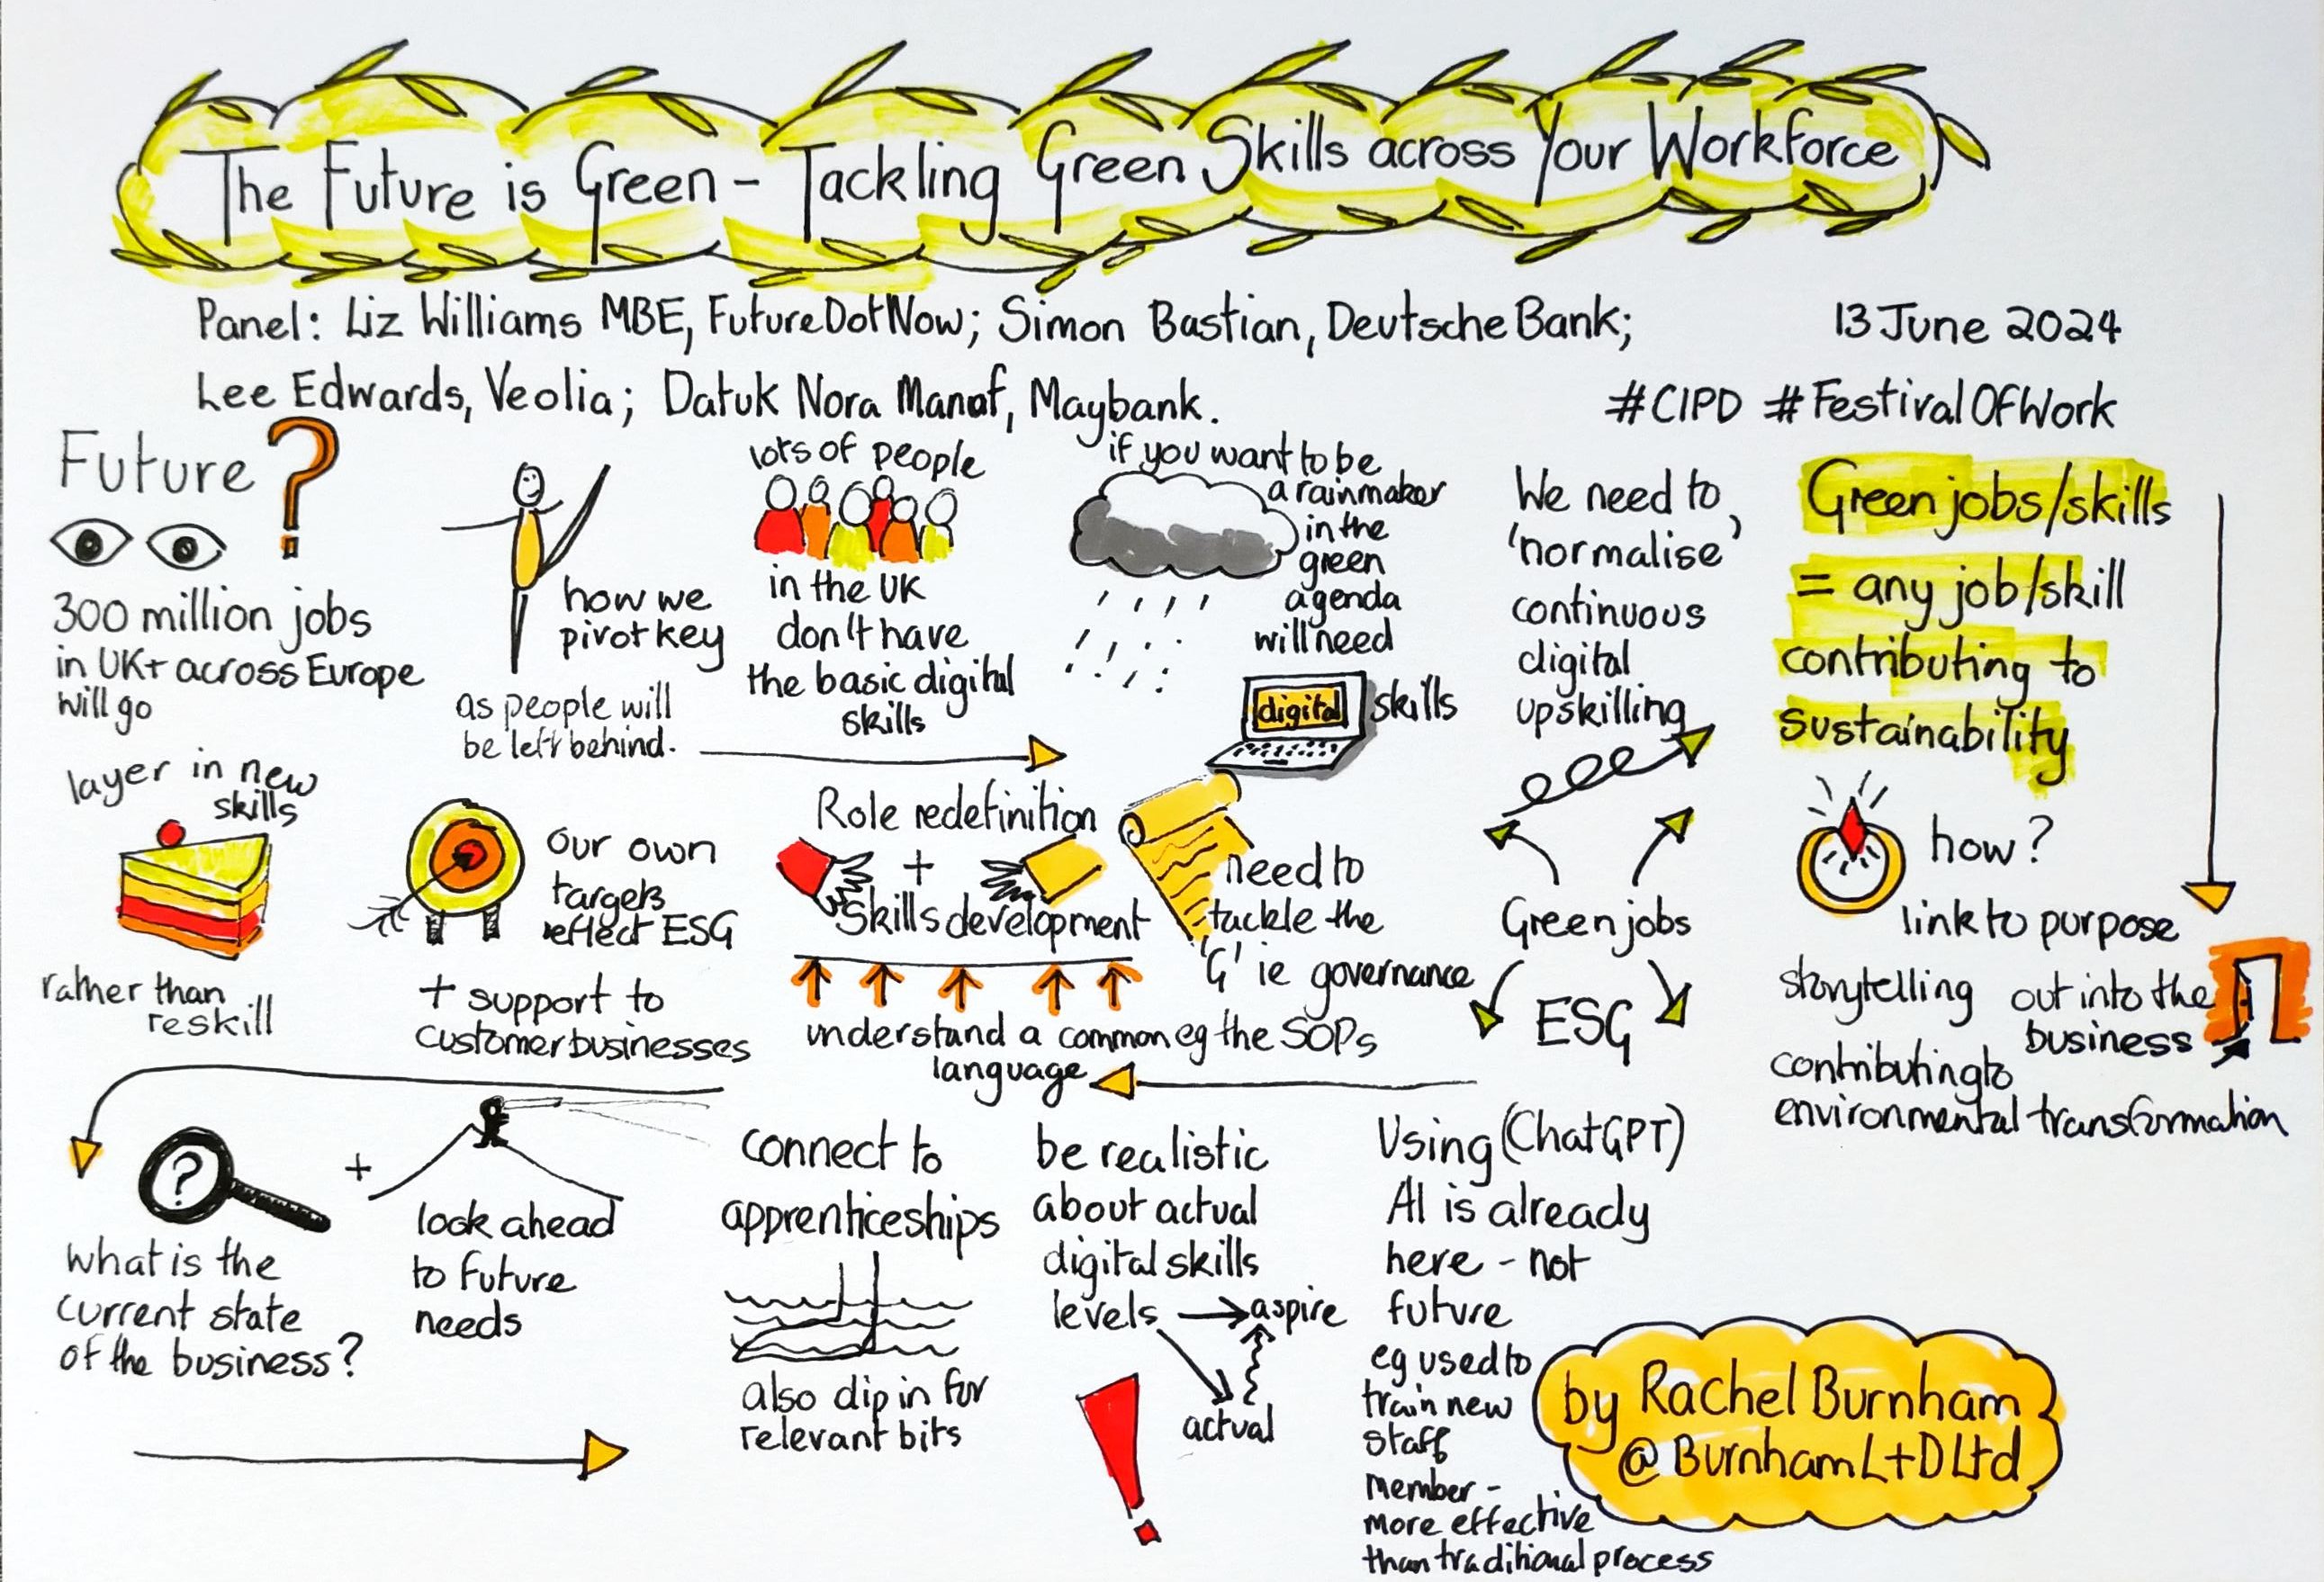 The Future is Green - Tackling Green Skills across Your Workforce
Panel: Liz Williams MBE, FutureDotNow; Simon Bastian, Deutsche Bank;
13 June 2024
Lee Edwards, Veolia; Datuk Nora Manaf, Maybank.
#CIPD #FestivalOfWork
Future ?
300 million jobs
in UK + across Europe
will go
how we
pivot key
as people will
be left behind.
lots of people
in the UK
don't have
the basic digital
skills
if you want to be
a rainmaker
in the
green
agenda
will need
digital skills
We need to
'normalise'
continuous
digital
upskilling
Green jobs/skills
= any job/skill
contributing to
sustainability
how?
link to purpose
storytelling
out into the
business
contributing to
environmental transformation
Green jobs
ESG
need to
tackle the
'G' ie governance
eg the SOPs
Role redefinition
+
Skills development
understand a common
language
our own
targets
reflect ESG
+ support to
customer businesses
layer in new
skills
rather than
reskill
?
what is the
current state
of the business?
+
look ahead
to future
needs
connect to
apprenticeships
also dip in for
relevant bits
be realistic
about actual
digital skills
levels → aspire
actual
!
Using (ChatGPT)
AI is already
here - not
future
eg used to
train new
staff
member -
more effective
than traditional process
by Rachel Burnham
@BurnhamL+DLtd